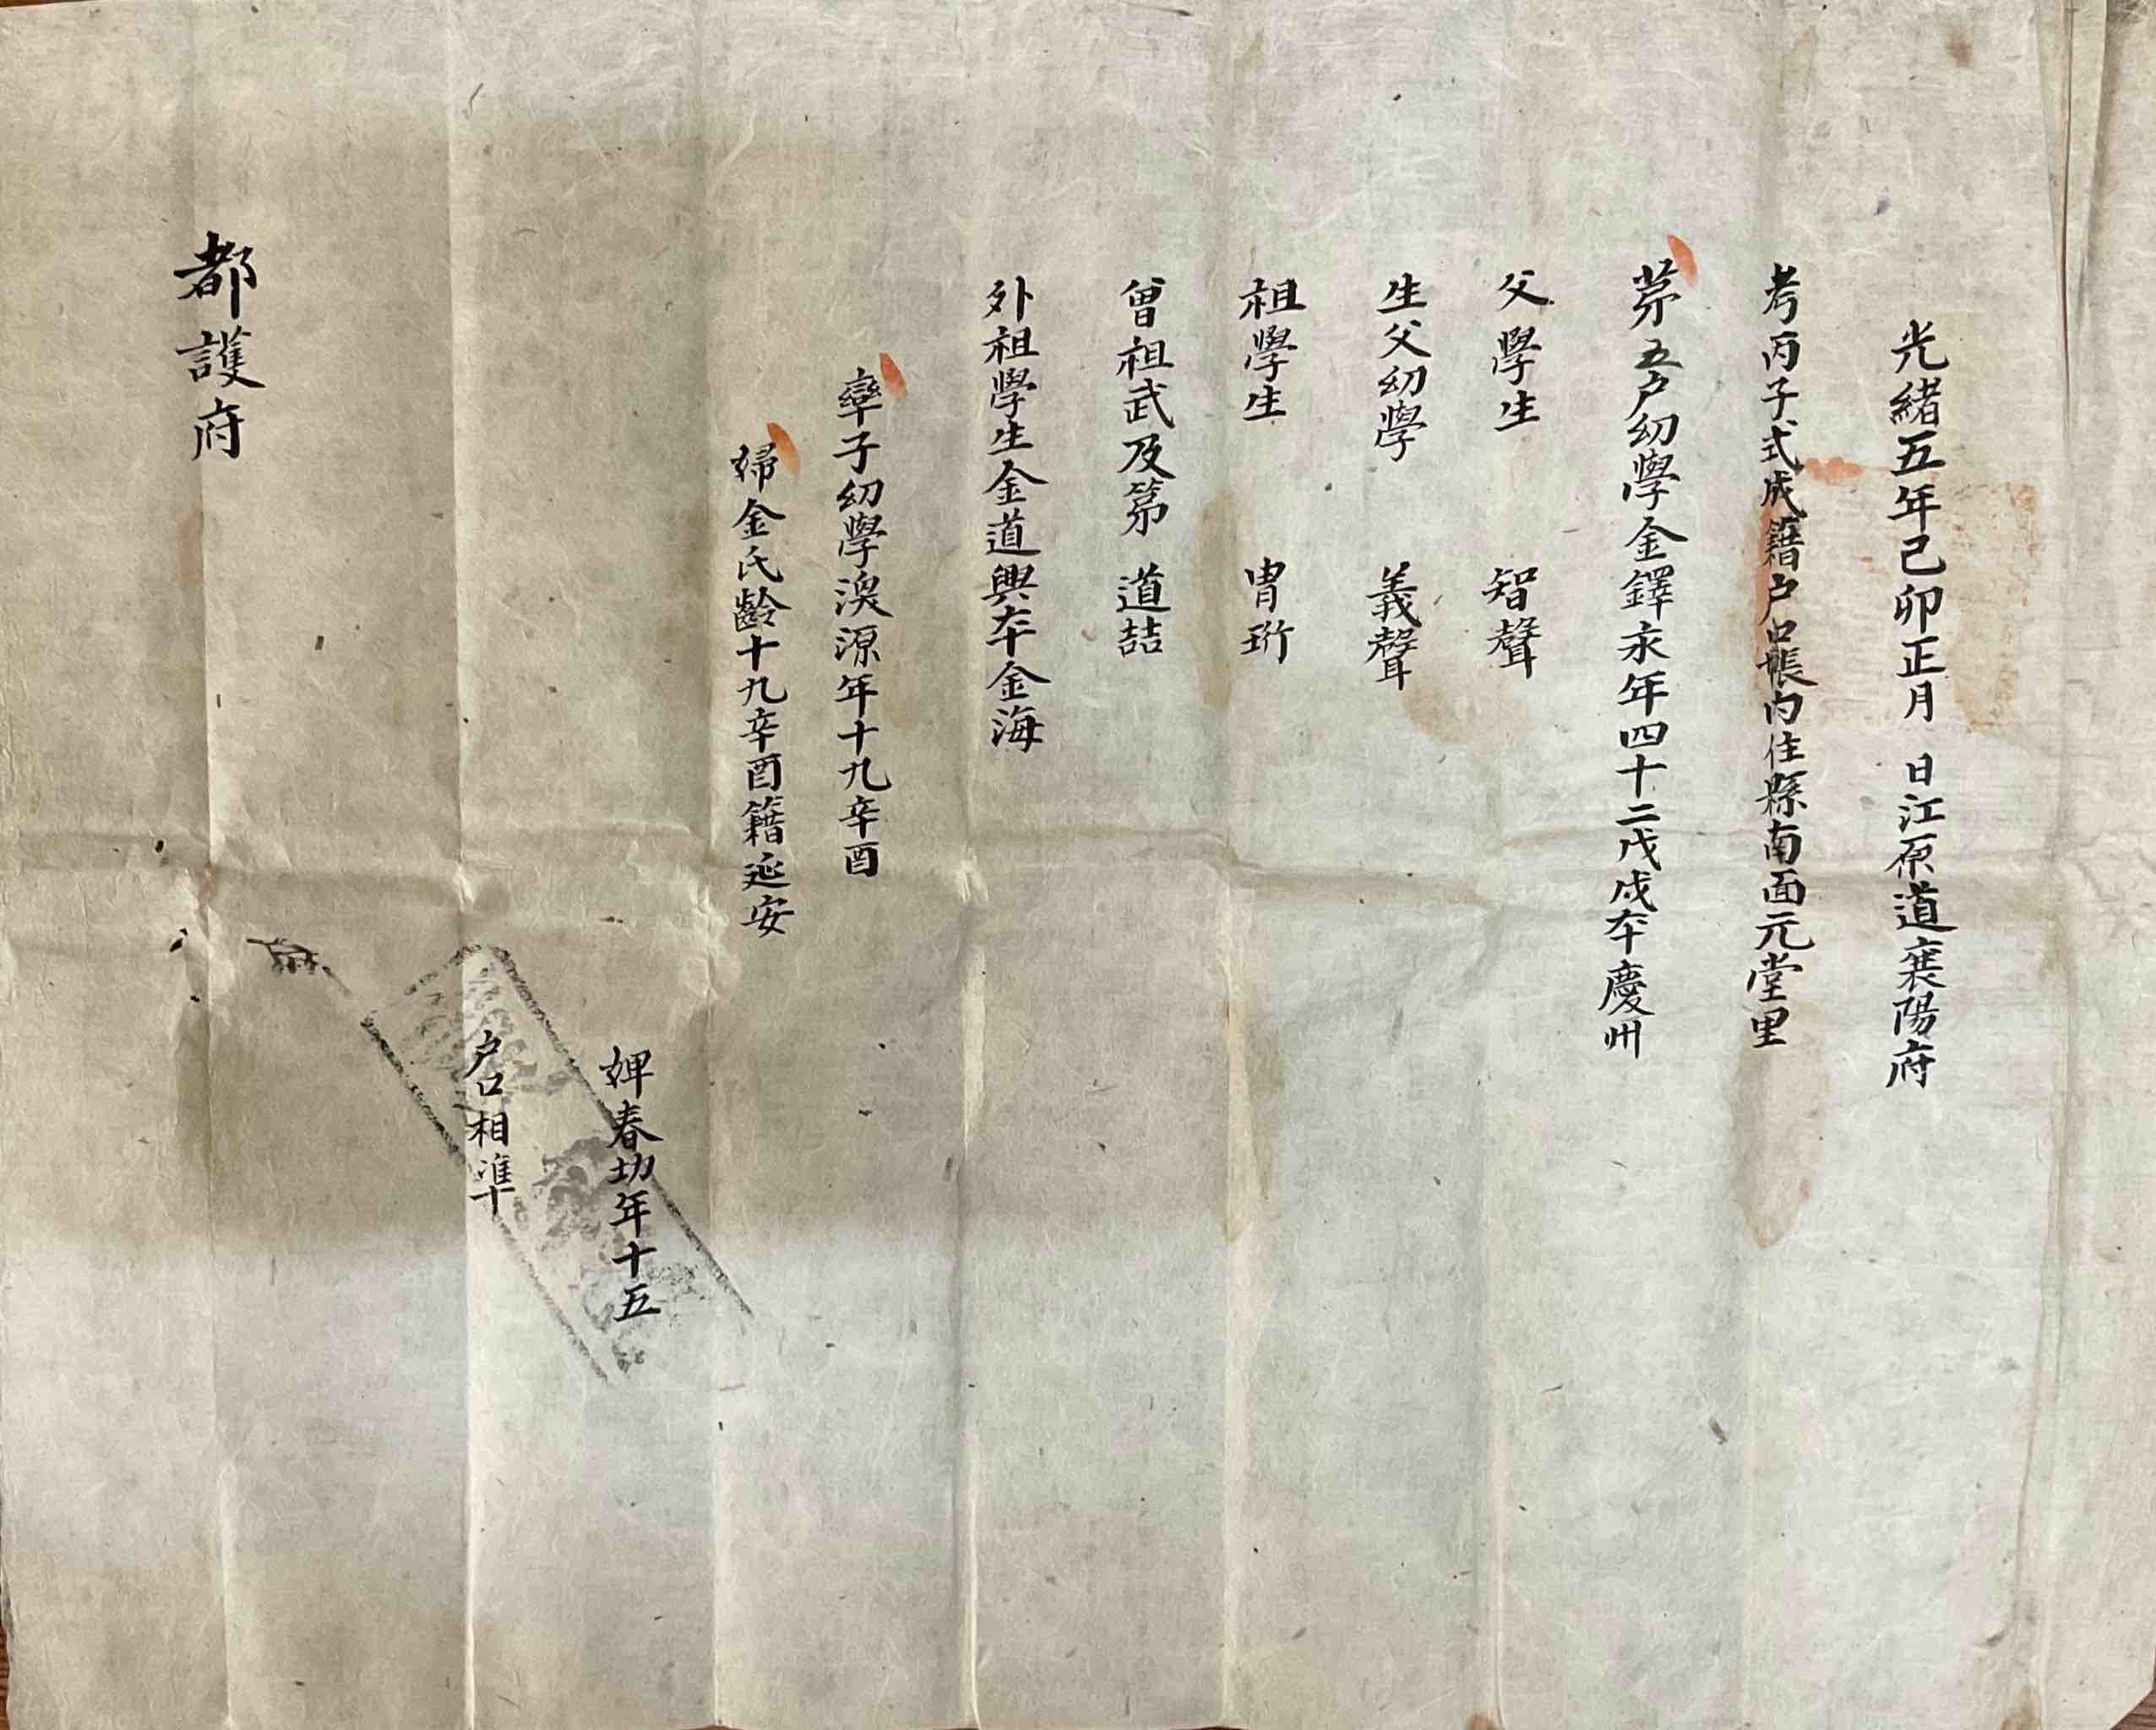 光緒五年己卯正月 日江原道襄陽府
考丙子式成籍戶口帳內住縣南面元堂里
苐五戶幼學金鐸永年四十二戊戌本慶州
父學生 智聲
生父幼學 義聲
祖學生 胄珩
曾祖武及第 道喆
外祖學生金道興本金海
率子幼學渙源年十九辛酉
婦金氏齡十九辛酉籍延安
婢春功年十五
戶口相準
都護府